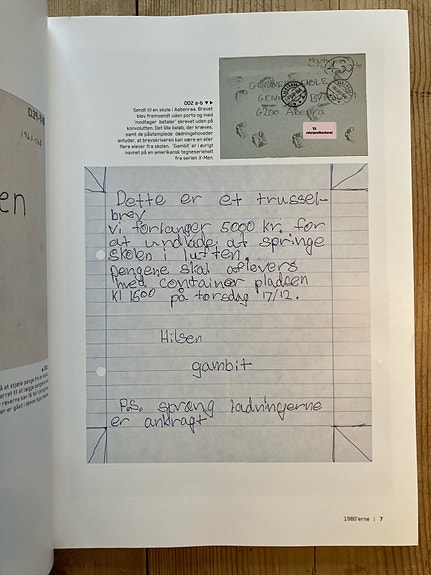 002 a-b ▼ ►
Sendt til en skole i Aabenraa. Brevet
blev fremsendt uden porto og med
'modtager betaler' skrevet uden på
konvolutten. Det lille beløb, der kræves,
samt de påstemplede dødningehoveder
antyder, at brevskriveren kan være en eller
flere elever fra skolen. 'Gambit' er i øvrigt
navnet på en amerikansk tegneseriehelt
fra serien X-Men.
6200 Aabenrå
Dette er et trussel-
brev
vi forlanger 5000 kr. for
at undlade at springe
skolen i luften.
pengene skal aflevers
hved container pladsen
Kl 1600 på torsdag 17/12.
Hilsen
gambit
P.S. sprang ladningerne
er anbragt
en
1980'erne | 7